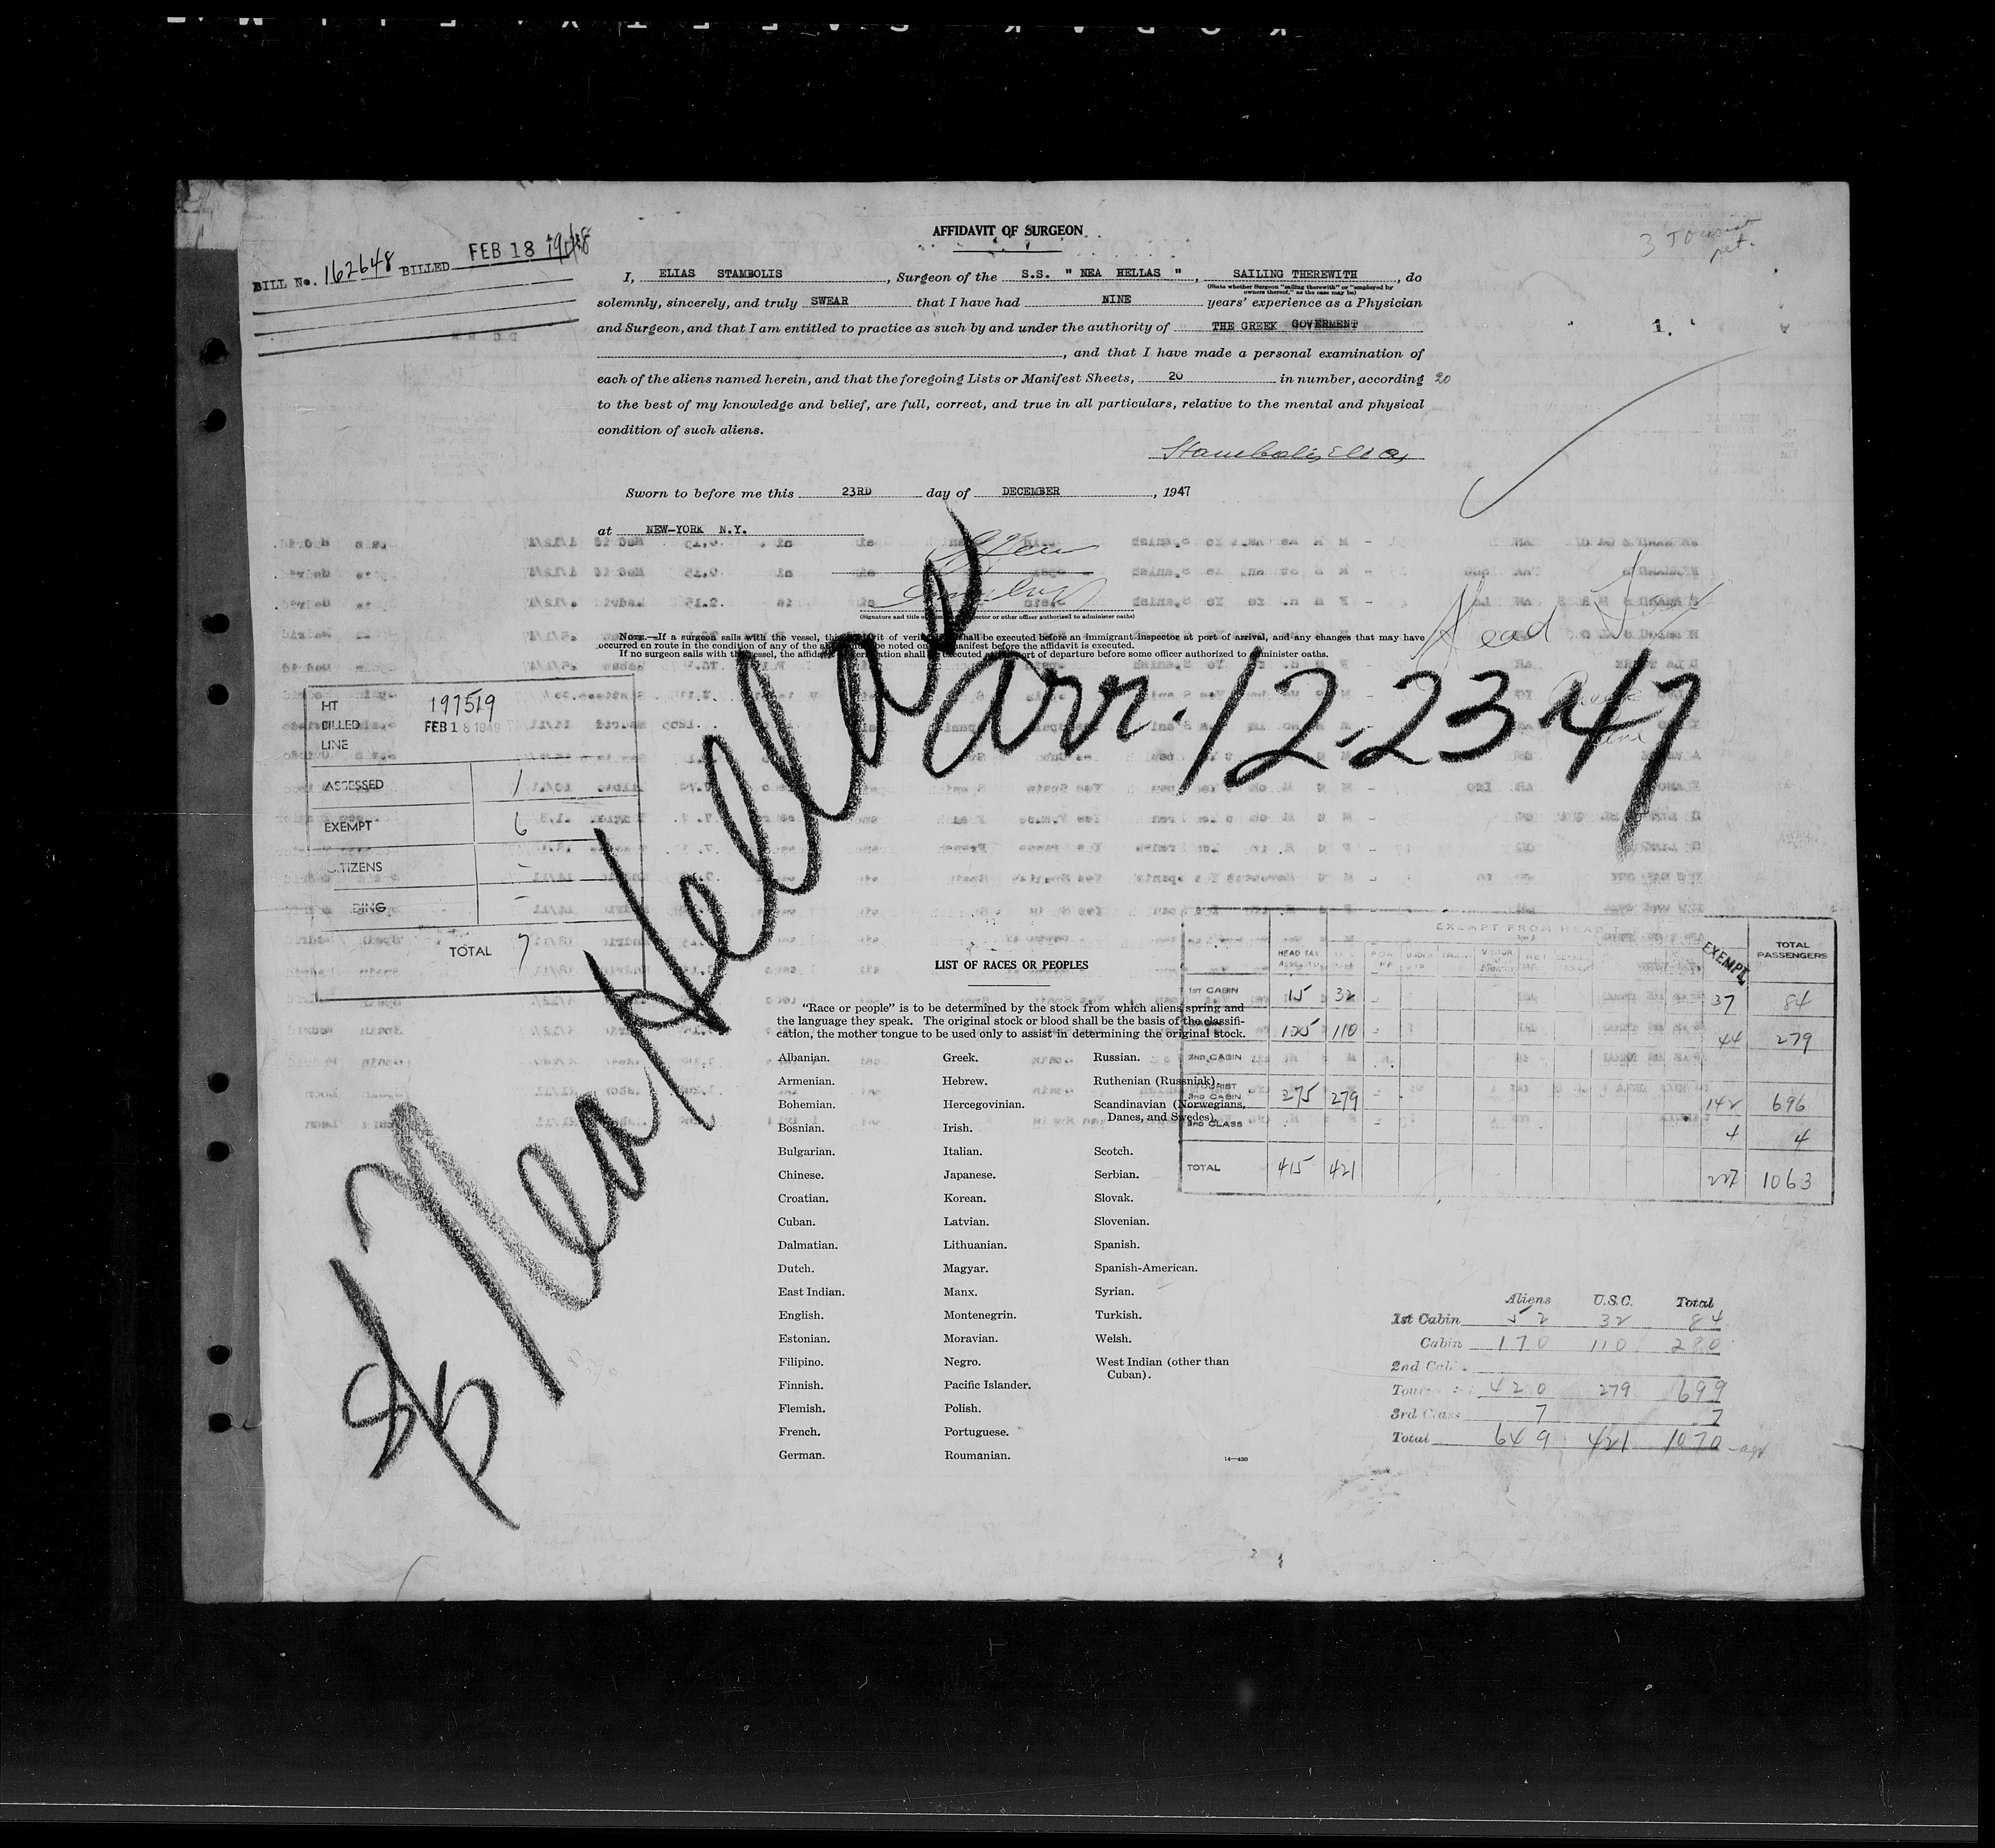 AFFIDAVIT OF SURGEON
3 Tourist
BILL No. 162648 BILLED FEB 18 1948
I, ELIAS STAMBOLIS, Surgeon of the S.S. " NEA HELLAS ", SAILING THEREWITH, do
(State whether Surgeon "sailing therewith" or "employed by
owners thereof," as the case may be)
solemnly, sincerely, and truly SWEAR that I have had NINE years' experience as a Physician
and Surgeon, and that I am entitled to practice as such by and under the authority of THE GREEK GOVERMENT
1.
, and that I have made a personal examination of
each of the aliens named herein, and that the foregoing Lists or Manifest Sheets, 20 in number, according 20
to the best of my knowledge and belief, are full, correct, and true in all particulars, relative to the mental and physical
condition of such aliens.
Stambolis Elias
Sworn to before me this 23RD day of DECEMBER, 1947
at NEW-YORK N.Y.
Head Tax
NOTE.—If a surgeon sails with the vessel, this shall be executed before an immigrant inspector at port of arrival, and any changes that may have
occurred en route in the condition of any of the be noted on manifest before the affidavit is executed.
If no surgeon sails with the vessel, the shall executed at port of departure before some officer authorized to administer oaths.
SS Nea Hellas
arr. 12-23-47
HT 197519
BILLED FEB 18 194
LINE
ASSESSED 1
EXEMPT 6
CITIZENS -
DING -
TOTAL 7
EXEMPT FROM HEAD
HEAD TAX EXEMPT TOTAL PASSENGERS
1ST CABIN 15 32 37 84
125 110 44 279
2ND CABIN
TOURIST
3RD CABIN 275 279 142 696
3RD CLASS 4 4
TOTAL 415 421 227 1063
LIST OF RACES OR PEOPLES
"Race or people" is to be determined by the stock from which aliens spring and
the language they speak. The original stock or blood shall be the basis of the classifi-
cation, the mother tongue to be used only to assist in determining the original stock.
Albanian.
Armenian.
Bohemian.
Bosnian.
Bulgarian.
Chinese.
Croatian.
Cuban.
Dalmatian.
Dutch.
East Indian.
English.
Estonian.
Filipino.
Finnish.
Flemish.
French.
German.
Greek.
Hebrew.
Hercegovinian.
Irish.
Italian.
Japanese.
Korean.
Latvian.
Lithuanian.
Magyar.
Manx.
Montenegrin.
Moravian.
Negro.
Pacific Islander.
Polish.
Portuguese.
Roumanian.
Russian.
Ruthenian (Russniak).
Scandinavian (Norwegians,
Danes, and Swedes).
Scotch.
Serbian.
Slovak.
Slovenian.
Spanish.
Spanish-American.
Syrian.
Turkish.
Welsh.
West Indian (other than
Cuban).
14—430
Aliens U.S.C. Total
1st Cabin 52 32 84
Cabin 170 110 280
2nd Cabin
Tour 420 279 699
3rd Class 7 7
Total 649 421 1070